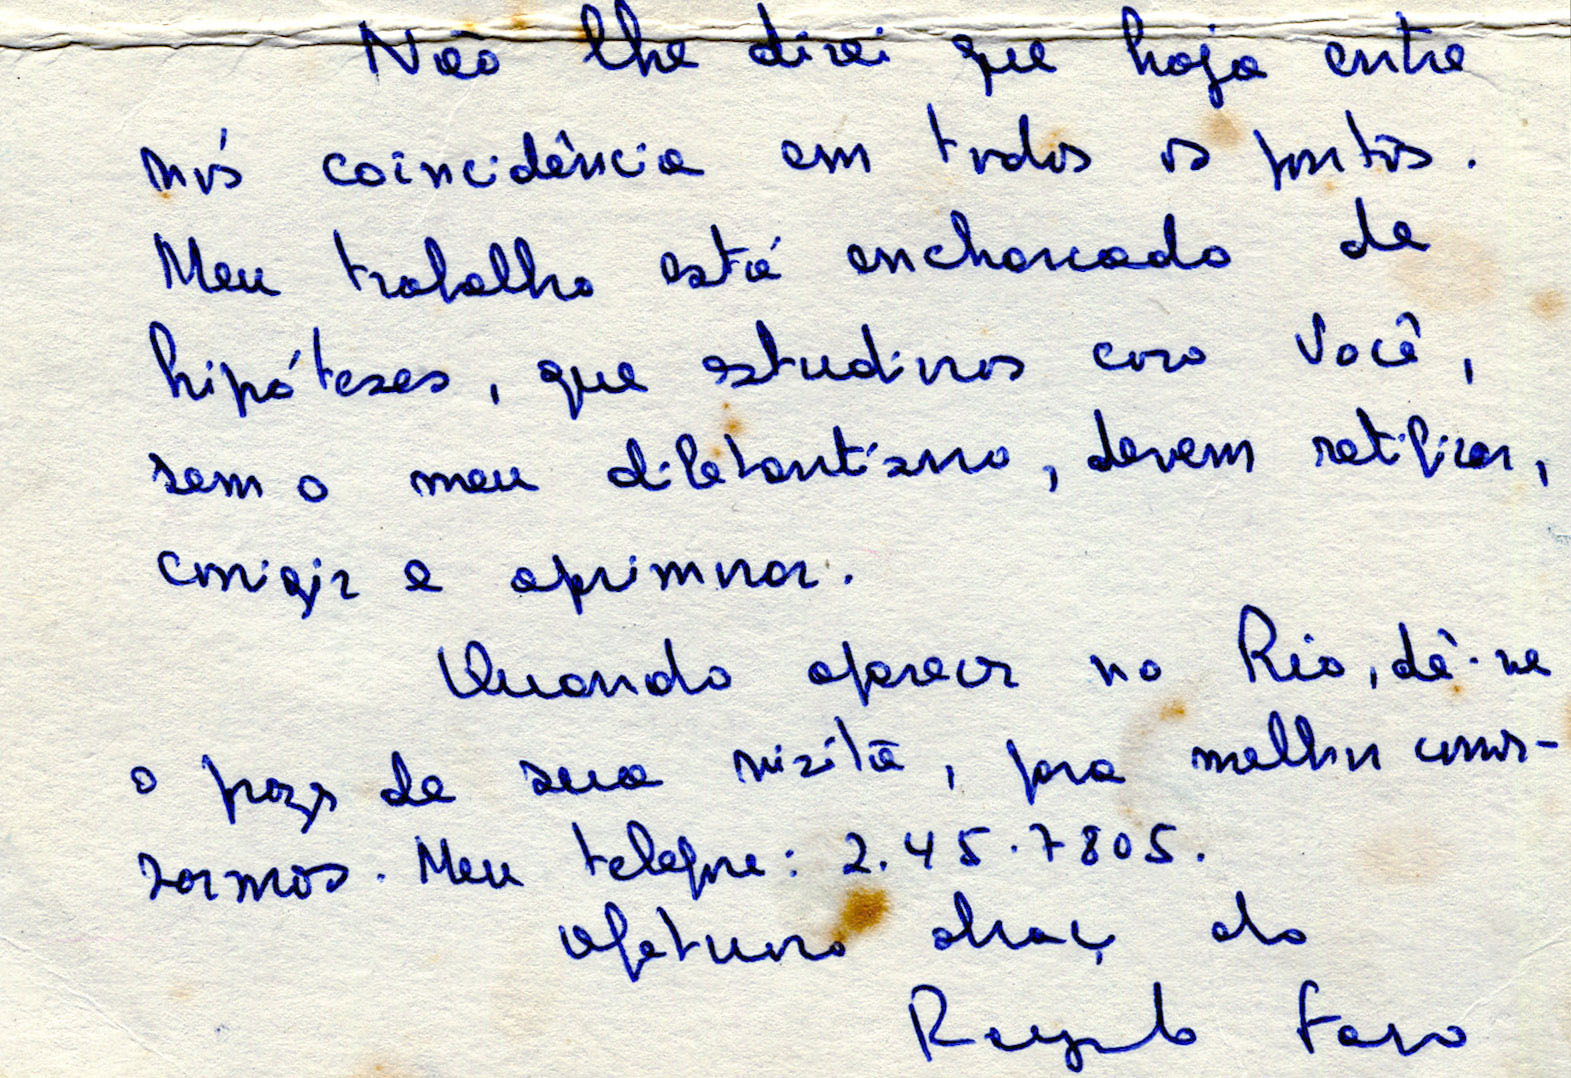 Não lhe direi que haja entre
nós coincidência em todos os pontos.
Meu trabalho está encharcado de
hipóteses, que estudiosos como Você,
sem o meu diletantismo, devem retificar,
corrigir e aprimorar.
Quando aparecer no Rio, dê-me
o prazer de sua visita, para melhor conver-
sarmos. Meu telefone: 2.45.7805.
Afetuoso abraço do
Faro